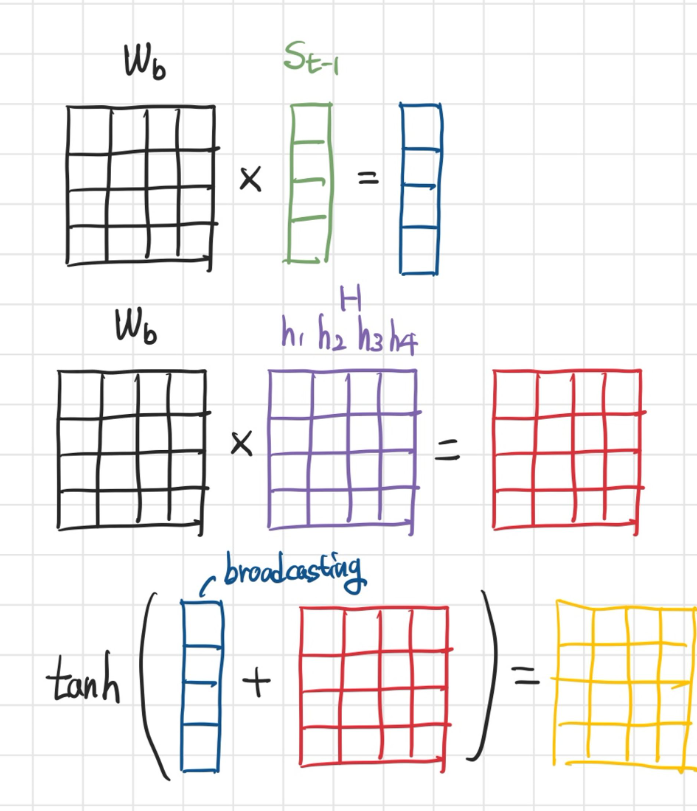 W_b S_{t-1}
× =
W_b H
h₁ h₂ h₃ h₄
× =
broadcasting
tanh ( + ) =